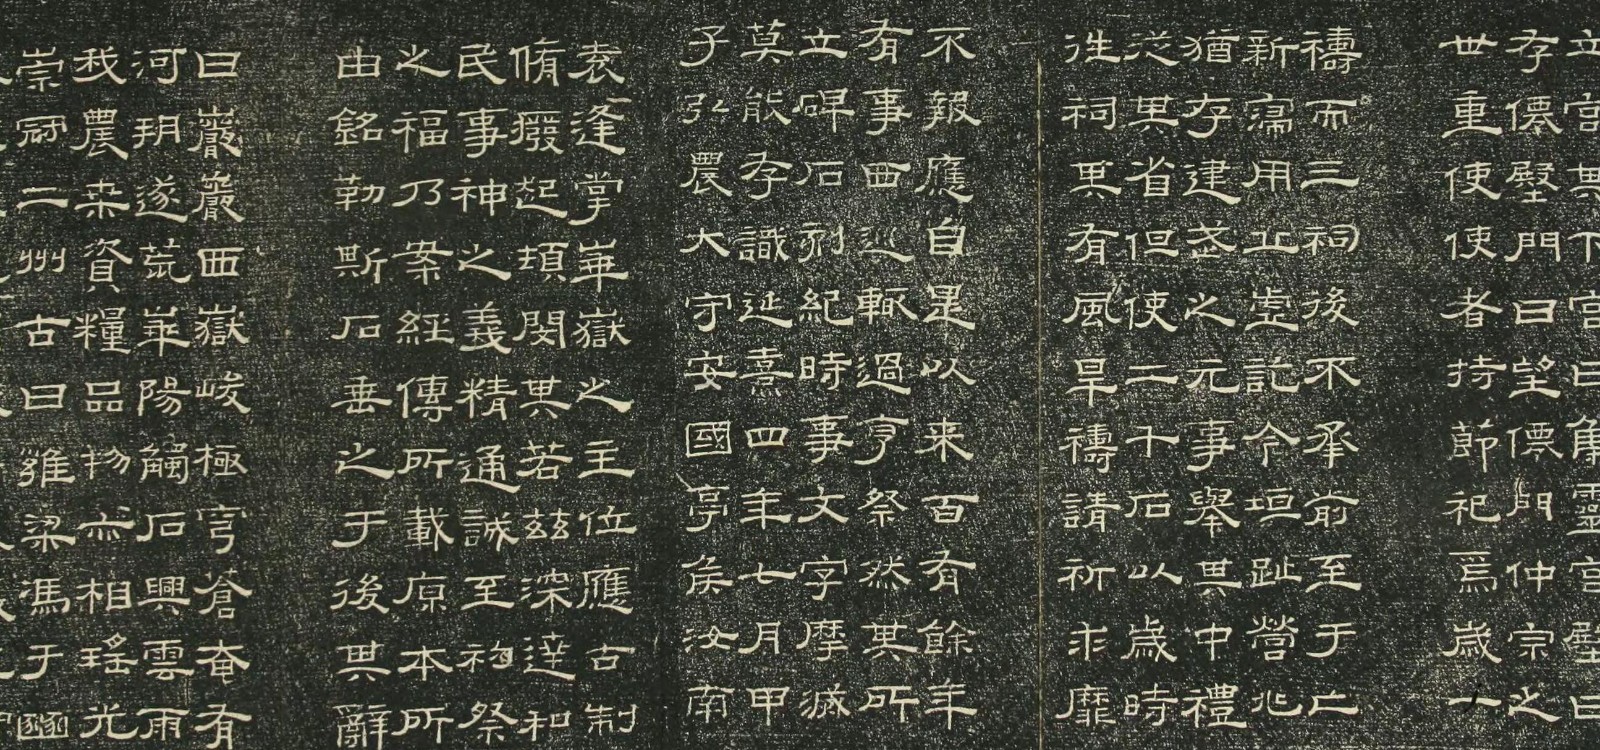 立宮其下宮曰集靈宮壂曰
存僊壂門曰望僊門仲宗之
世重使使者持節祀焉歲一
禱而三祠後不承前至于亡
新寖用丘虛訖今垣趾營兆
猶存建武之元事舉其中禮
從其省但使二千石以歲時
往祠其有風旱禱請祈求靡
不報應自是以來百有餘年
有事西巡輒過亨祭然其所
立碑石刻紀時事文字摩滅
莫能存識延熹四年七月甲
子弘農大守安國亭侯汝南
袁逢掌華嶽之主位應古制
脩廢起頓閔其若茲深達和
民事神之義精通誠至礿祭
之福乃案經傳所載原本所
由銘勒斯石垂之于後其辭
曰巖巖西嶽峻極穹蒼奄有
河朔遂荒華陽觸石興雲雨
我農桑資糧品物亦相瑤光
崇冠二州古曰雍梁馮于豳